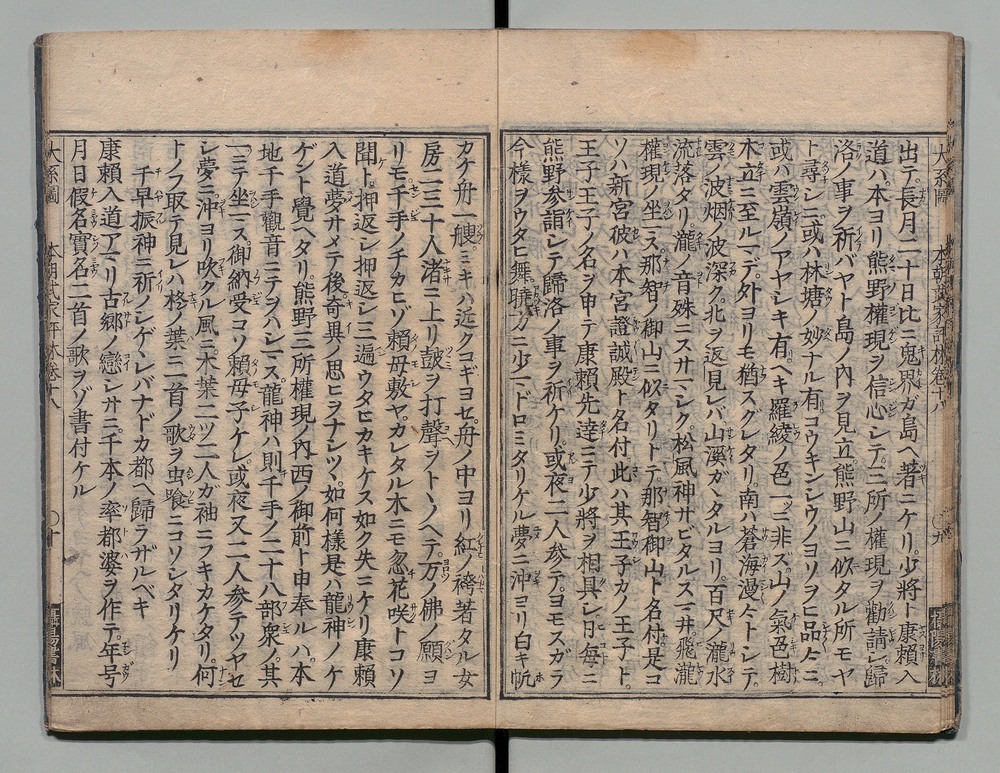 出テ。長月二十日比ニ鬼界ガ島ヘ著ニケリ。少將ト康賴入
道ハ。本ヨリ熊野權現ヲ信心シテ。三所ノ權現ヲ勸請シ歸
洛ノ事ヲ祈バヤト島ノ内ヲ見立。熊野山ニ似タル所モヤ
ト尋シニ。或ハ林塘ノ妙ナル有コウキンシウノヨソヲヒ品々ニ。
或ハ雲嶺ノアヤシキ有ヘキ羅綾ノ色一ツニ非ズ。山ノ氣色樹
木立ニ至ルマデ。外ヨリモ猶スグレタリ。南ハ蒼海漫々トシテ。
雲ノ波烟ノ波深ク。北ヲ返見レバ山溪ガヽタルヨリ。百尺ノ瀧水
流落タリ。瀧ノ音殊ニスサマシク。松風神サビタルスマ井。飛瀧
權現ノ坐マス那智ノ御山ニ似タリトテ。那智御山ト名付。是コ
ソハ新宮彼ハ本宮證誠殿ト名付。此ハ其王子カノ王子ト。
王子王子ノ名ヲ申テ。康賴先達ニテ少將ヲ相具シ。日毎ニ
熊野參詣シテ。歸洛ノ事ヲ祈ケリ。或夜二人參テ。ヨモスガラ
今樣ヲウタヒ舞。曉方ニ少マドロミタリケル夢ニ。沖ヨリ白キ帆
カケ舟一艘ミキハ近クコギヨセ。舟ノ中ヨリ紅ノ袴著タル女
房二三十人渚ニ上リ。鼓ヲ打聲ヲトヽノヘテ。万ノ佛ノ願ヨ
リモ千手ノチカヒゾ賴母敷ヤ。カレタル木ニモ忽花咲トコソ
聞ト。押返シ押返シ三遍ウタヒカキケス如ク失ニケリ。康賴
入道夢サメテ後奇異ノ思ヒヲナシツヽ。如何樣是ハ龍神ノケ
ゲント覺ヘタリ。熊野三所權現ノ内西ノ御前ト申奉ルハ。本
地千手觀音ニテヲハシマス。龍神ハ則千手ノ二十八部衆ノ其
一ニテ坐マス。御納受コソ賴母子ケレ。或夜又二人參テツヤセ
シ夢ニ。沖ヨリ吹クル風ニ。木葉二ツ二人ガ袖ニフキカケタリ。何
トノフ取テ見レハ。梛ノ葉ニ二首ノ歌ヲ虫喰ニコソシタリケリ
千早振神ニ祈ノシゲンレバナドカ都ヘ歸ラザルベキ
康賴入道アマリ古郷ノ戀シサニ。千本ノ率都婆ヲ作テ。年号
月日假名實名二首ノ歌ヲゾ書付ケル